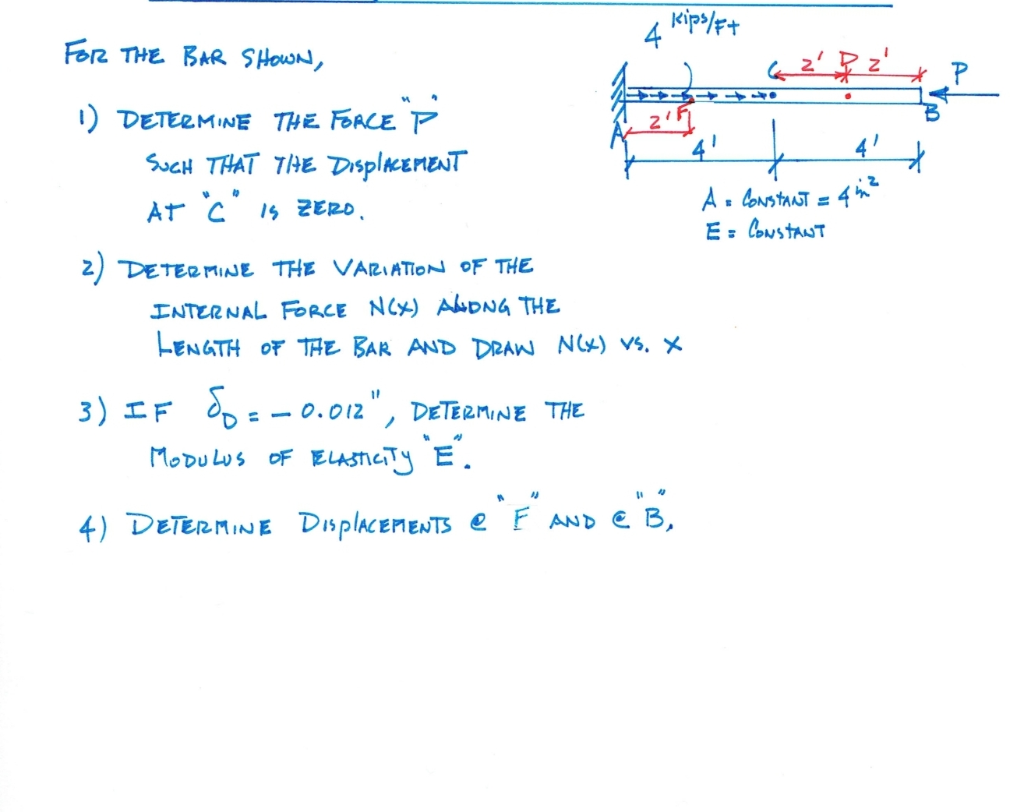 FOR THE BAR SHOWN,
1) DETERMINE THE FORCE "P"
SUCH THAT THE DISPLACEMENT
AT "C" IS ZERO.
2) DETERMINE THE VARIATION OF THE
INTERNAL FORCE N(X) ALONG THE
LENGTH OF THE BAR AND DRAW N(X) VS. X
3) IF δD = - 0.012", DETERMINE THE
MODULUS OF ELASTICITY "E".
4) DETERMINE DISPLACEMENTS @ "F" AND @ "B",
4 Kips/Ft
C 2' D 2'
P
B
A 2' F
4' 4'
A = CONSTANT = 4 in²
E = CONSTANT